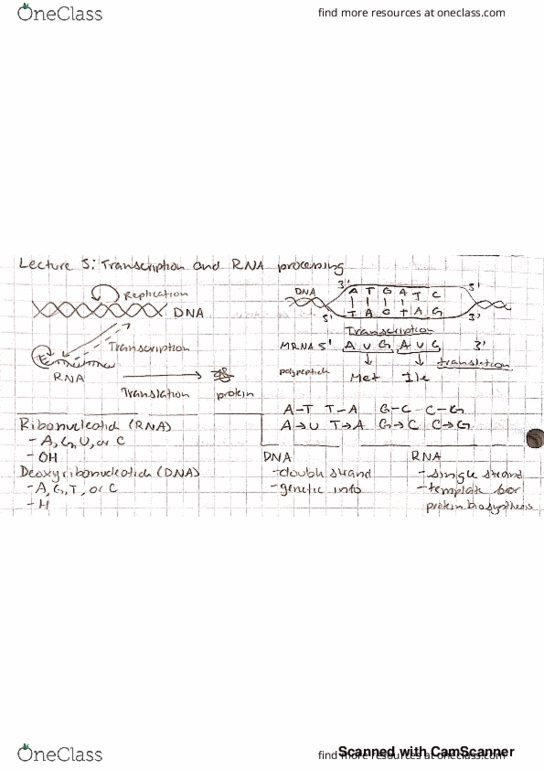 OneClass
find more resources at oneclass.com
Lecture 5: Transcription and RNA processing
Replication
DNA
Transcription
RNA
Translation
protein
3' A T G A T C 5'
DNA
5' T A C T A G 3'
Transcription
MRNA 5' A U G A U G 3'
translation
polypeptide
Met Ile
A-T T-A G-C C-G
A→U T→A G→C C→G
Ribonucleotid (RNA)
- A, G, U, or C
- OH
Deoxyribonucleotich (DNA)
- A, G, T, or C
- H
DNA
- double strand
- genetic info
RNA
- single strand
- template for
protein biosynthesis
OneClass
find more resources at oneclass.com
Scanned with CamScanner